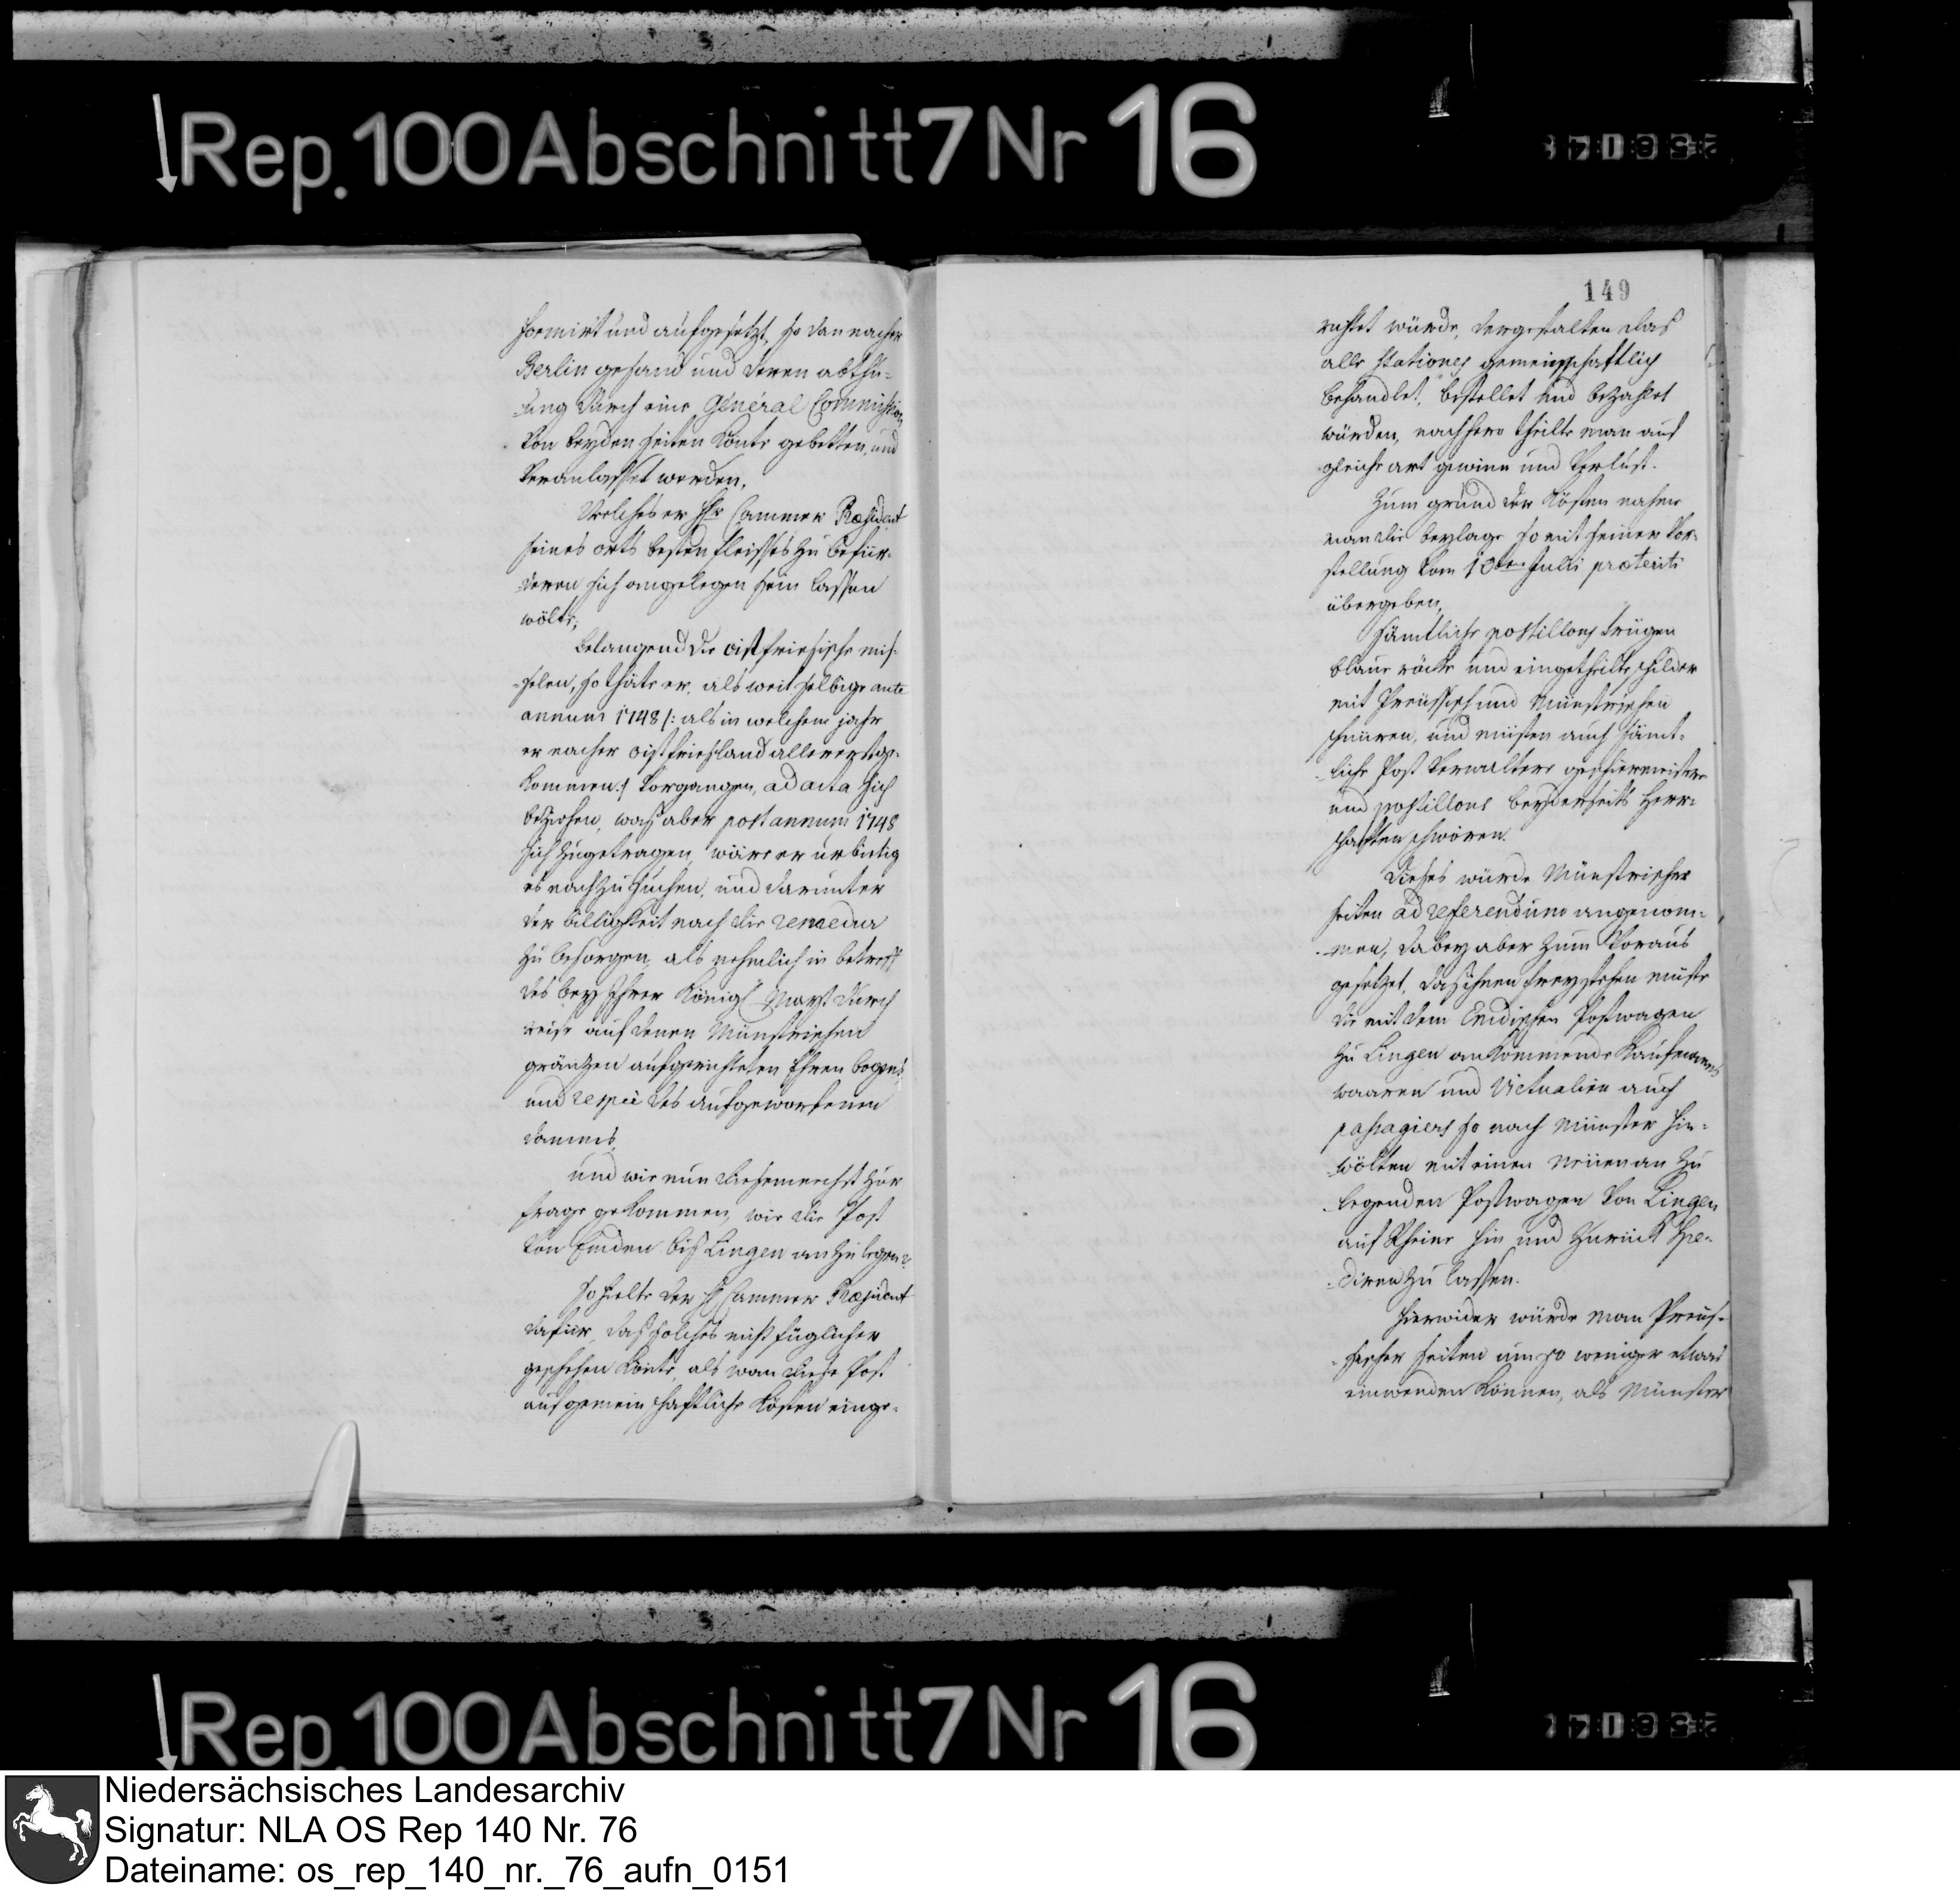 Rep. 100 Abschnitt 7 Nr 16
formirt und aufgesetzt, so dan nacher
Berlin gesand und deren abthu-
ung durch eine Général Commission
von beyden seiten könte gebetten, und
veranlasset werden.
Welches er Hr Cammer Præsident
seines orts besten fleisses zu befür-
deren sich angelegen sein lassen
wölte;
belangend die oistfriesische
so thäte er, als weit selbige ante
annum 1748 /: als in welchem jahr
er nacher oistfriesland allererst ge-
kommen :/ vorgangen, ad acta sich
beziehen, was aber post annum 1748
sich zugetragen, wäre er urbietig
es nachzusuchen, und darunter
der billigkeit nach die remedur
zu besorgen, als nehmlich in betreff
des bey Ihrer Königl. Mayst durch
reise auf denen Münstrischen
gräntzen aufgerichteten Ehren bogens
und des aufgeworfenen
dammes
und wie nun diesemnechst zur
frage gekommen, wie die Post
von Emden bis Lingen an zu legen?
so hielte der H Cammer Præsident
dafür, das solches nicht füglicher
geschehen könte, als wan diese Post
auf gemeinschaftliche kösten einge-
149
richtet würde, dergestalten das
alle stationes gemeinschaftlich
behandlet, bestellet und bezahlet
würden, nachhero theilte man auf
gleiche art gewinn und verlust.
Zum grund der kösten nahme
man die beylage so mit seiner vor-
stellung vom 13ten Julii præteriti
übergeben,
sämtliche postillons trügen
blaue röcke und eingetheilte schilder
mit Preussisch und Münstrischen
schnüren, und müsten auch sämt-
liche Post verwaltere geschirmeistere
und postillons beyderseits Herr-
schaften schwören.
Dieses würde Münstrischer
seiten ad referendum angenom-
men, dabey aber zum voraus
gesetzet, das ihnen freystehen müste
die mit dem Emdischen Postwagen
zu Lingen ankommende kaufmans
waaren und Victualien auch
passagiers so nach Münster hin
wölten mit einen neuen an zu
legenden Postwagen von Lingen
auf Rheine hin und zurück spe-
diren zu lassen.
hierwider würde man Preus-
sischer seiten um so weniger etwas
einwenden können, als Münster
Rep. 100 Abschnitt 7 Nr 16
Niedersächsisches Landesarchiv
Signatur: NLA OS Rep 140 Nr. 76
Dateiname: os_rep_140_nr._76_aufn_0151